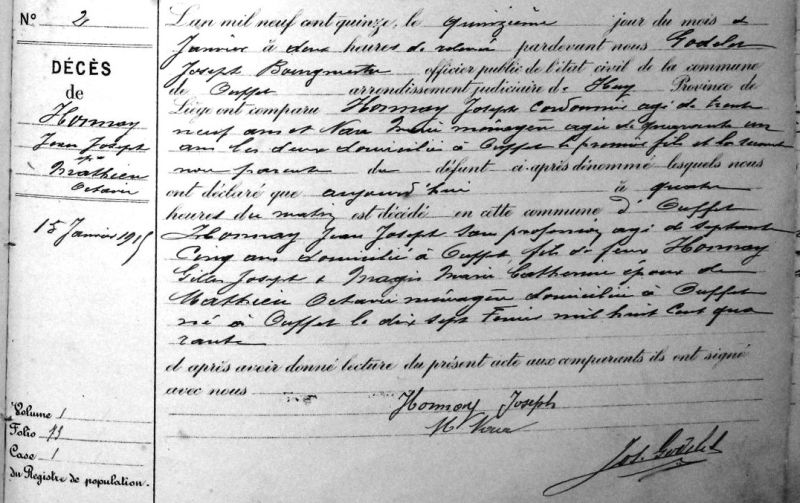 N° 2
DÉCÈS
de
Honnay
Jean Joseph
épx
Mathieu
Octavie
15 Janvier 1915
Volume 1
Folio 93
Case 1
du Registre de population.
L'an mil neuf cent quinze, le quinzième jour du mois de
Janvier à deux heures de relevée pardevant nous Godelet
Joseph Bourgmestre officier public de l'état civil de la commune
de Ouffet arrondissement judiciaire de Huy Province de
Liège ont comparu Honnay Joseph cordonnier agé de trente
neuf ans et Marie ménagère agée de quarante un
ans les deux domiciliés à Ouffet le premier fils et la seconde
non parente du défunt ci-après dénommé lesquels nous
ont déclaré que aujourd'hui à quatre
heures du matin est décédé en cette commune d'Ouffet
Honnay Jean Joseph sans profession agé de septante
cinq ans domicilié à Ouffet, fils de feux Honnay
Gilles Joseph & Magis Marie Catherine époux de
Mathieu Octavie ménagère domiciliée à Ouffet
né à Ouffet le dix sept Février mil huit cent qua
rante
et après avoir donné lecture du présent acte aux comparants ils ont signé
avec nous
Honnay Joseph
M
Jos. Godelet